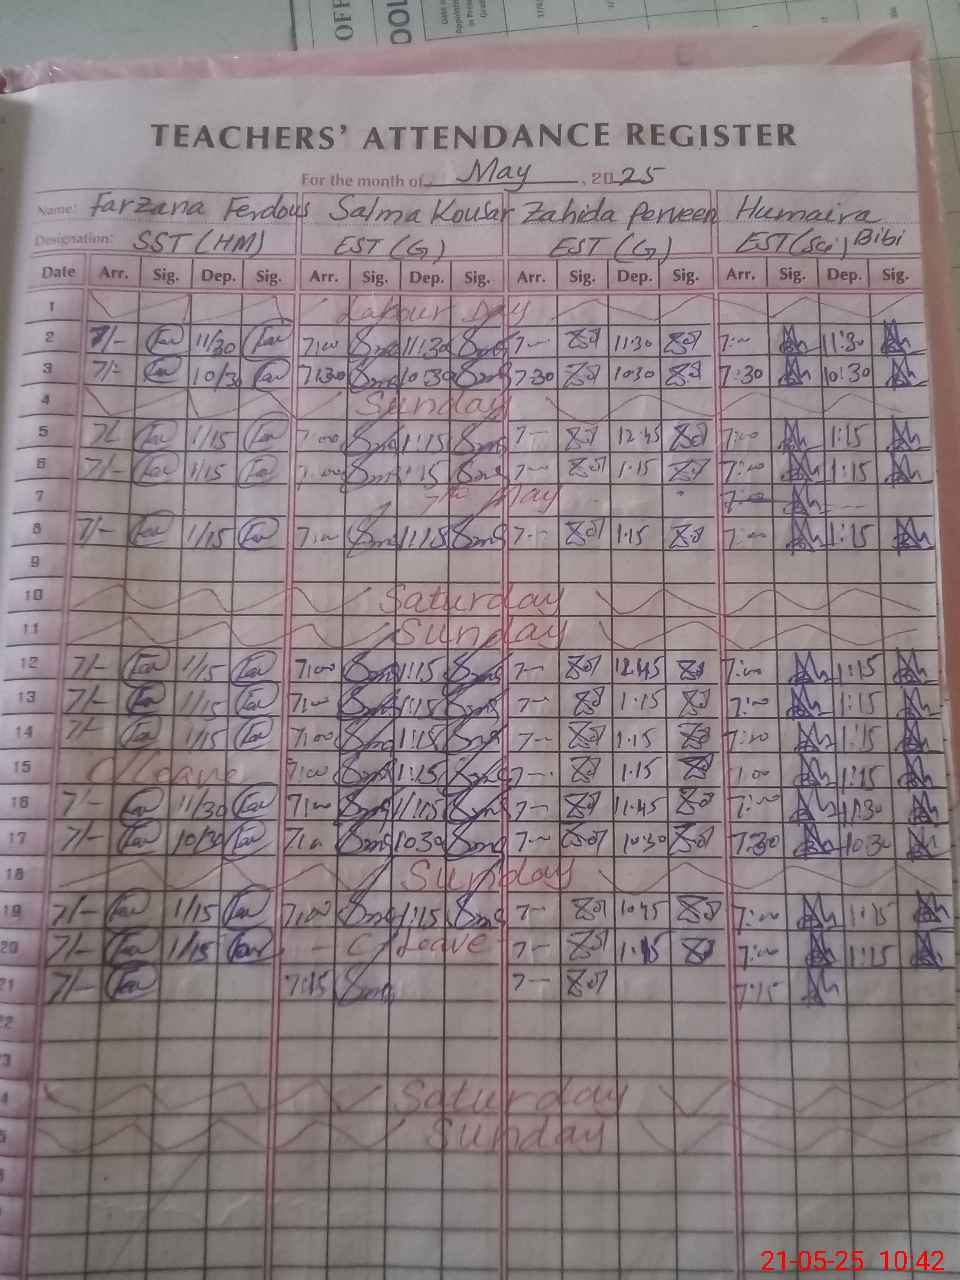 TEACHERS' ATTENDANCE REGISTER
For the month of May, 2025
Name: Farzana Ferdous Salma Kousar Zahida Perveen Humaira Bibi
Designation: SST (HM) EST (G) EST (G) EST (Sci)
Date Arr. Sig. Dep. Sig. Arr. Sig. Dep. Sig. Arr. Sig. Dep. Sig. Arr. Sig. Dep. Sig.
1 Labour Day
2 7/- 11/30 7:00 11:30 7- 11:30 7:00 11:30
3 7/- 10/30 7:30 10:30 7 30 10:30 7:30 10:30
4 Sunday
5 7/- 1/15 7:00 1:15 7- 12:45 7:00 1:15
6 7/- 1/15 7:00 1:15 7- 1:15 7:00 1:15
7 7th May 7:00
8 7/- 1/15 7:00 1:15 7- 1:15 7:00 1:15
9
10 Saturday
11 Sunday
12 7/- 1/15 7:00 1:15 7- 12:45 7:00 1:15
13 7/- 1/15 7:00 1:15 7- 1:15 7:00 1:15
14 7/- 1/15 7:00 1:15 7- 1:15 7:00 1:15
15 C/Leave 7:00 1:15 7- 1:15 7:00 1:15
16 7/- 11/30 7:00 7- 11:45 7:00 11:30
17 7/- 10/30 10:30 7- 10:30 7:30 10:30
18 Sunday
19 7/- 1/15 7:00 1:15 7- 10:45 7:00 1:15
20 7/- 1/15 - C/Leave - 7- 1:15 7:00 1:15
21 7/- 7:15 7- 7:15
22
3
4 Saturday
5 Sunday
21-05-25 10:42